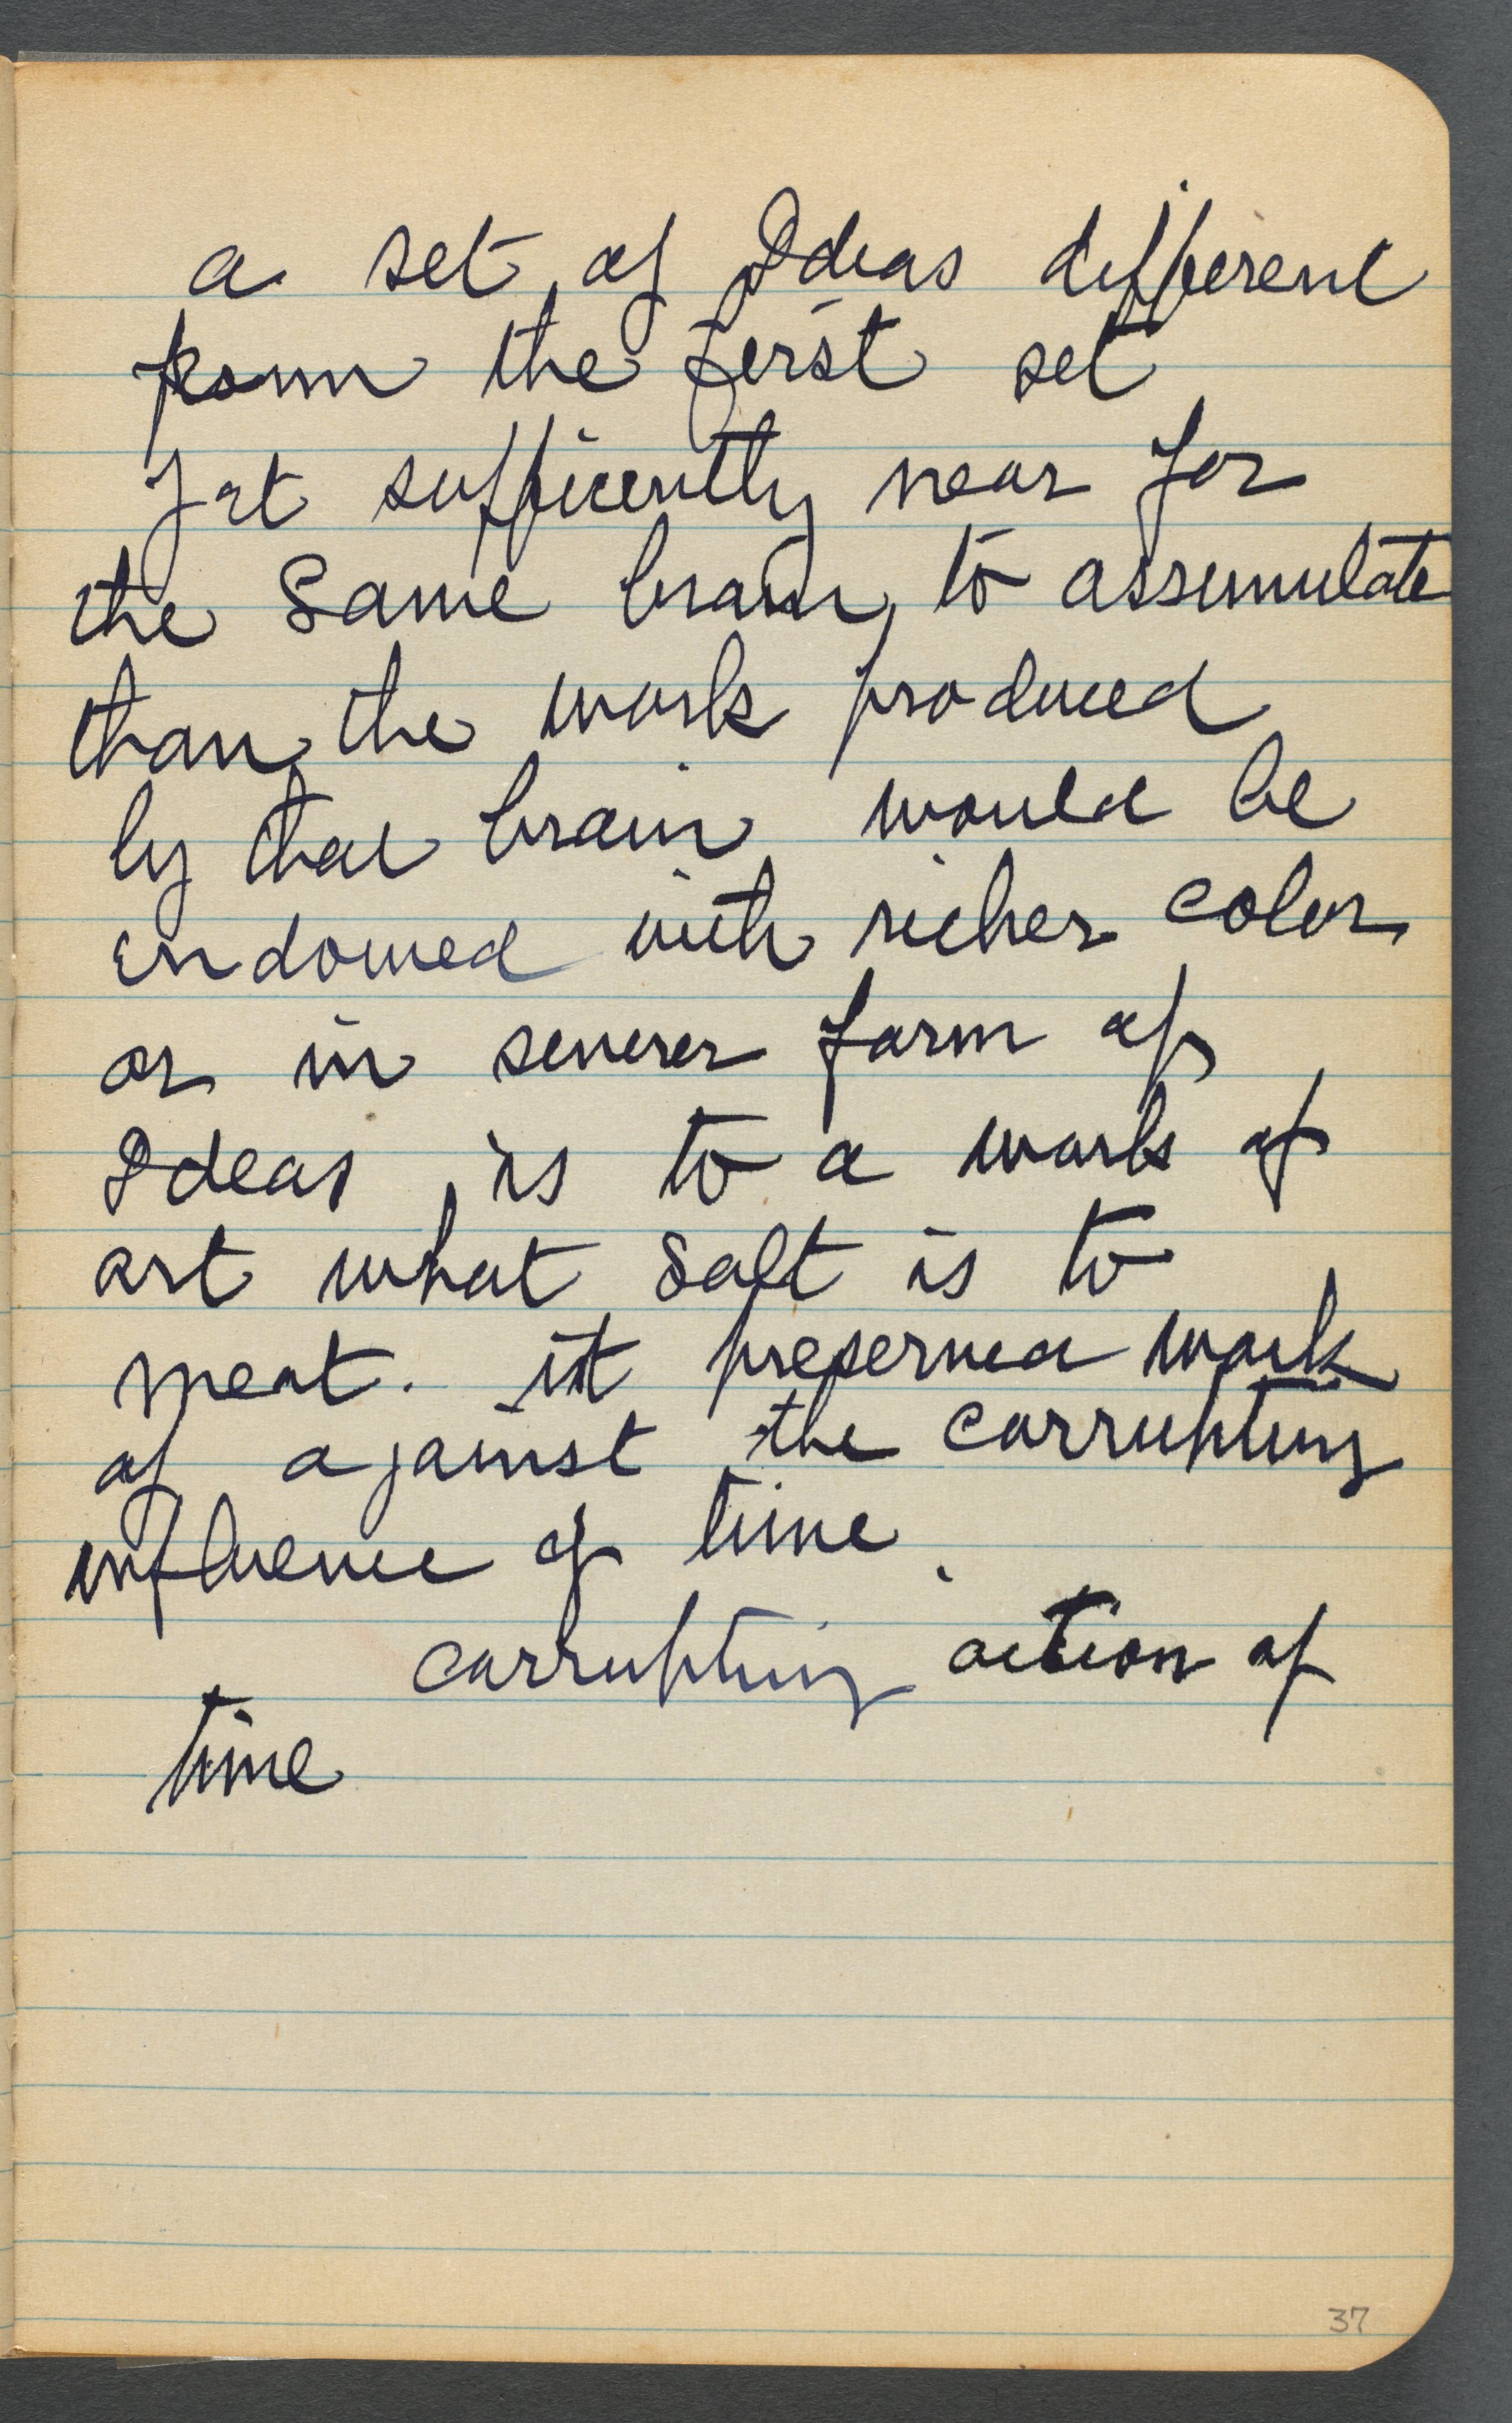 a set of Ideas different
from the first set
Yet sufficently near for
the Same brain, to assumulate
than the work produced
by that brain would be
endowed with richer color
or in severer form of
Ideas is to a work of
art what Salt is to
meat. it preserved work
of against the corrupting
influence of time.
corrupting action of
time
37